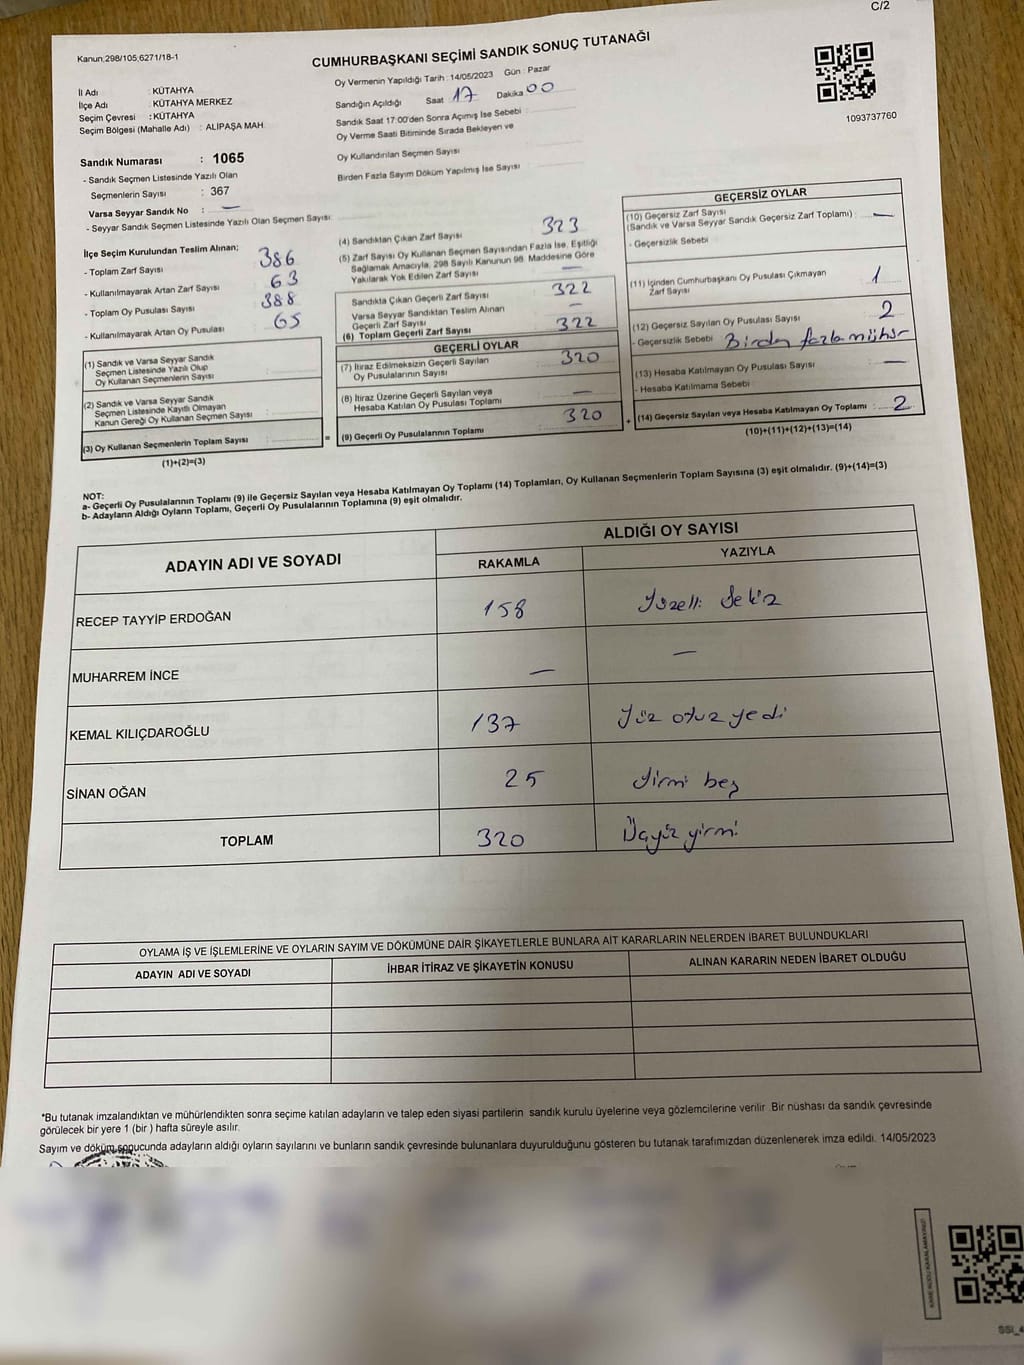 C/2
Kanun:298/105;6271/18-1
CUMHURBAŞKANI SEÇİMİ SANDIK SONUÇ TUTANAĞI
Oy Vermenin Yapıldığı Tarih : 14/05/2023 Gün : Pazar
İl Adı : KÜTAHYA
İlçe Adı : KÜTAHYA MERKEZ
Seçim Çevresi : KÜTAHYA
Seçim Bölgesi (Mahalle Adı) : ALİPAŞA MAH
Sandığın Açıldığı Saat 17 Dakika 00
Sandık Saat 17:00'den Sonra Açımış İse Sebebi :
Oy Verme Saati Bitiminde Sırada Bekleyen ve
Oy Kullandırılan Seçmen Sayısı
Birden Fazla Sayım Döküm Yapılmış İse Sayısı
1093737760
Sandık Numarası : 1065
- Sandık Seçmen Listesinde Yazılı Olan
Seçmenlerin Sayısı : 367
Varsa Seyyar Sandık No : —
- Seyyar Sandık Seçmen Listesinde Yazılı Olan Seçmen Sayısı:
İlçe Seçim Kurulundan Teslim Alınan;
- Toplam Zarf Sayısı 386
- Kullanılmayarak Artan Zarf Sayısı 63
- Toplam Oy Pusulası Sayısı 388
- Kullanılmayarak Artan Oy Pusulası 65
(1) Sandık ve Varsa Seyyar Sandık
Seçmen Listesinde Yazılı Olup
Oy Kullanan Seçmenlerin Sayısı :
(2) Sandık ve Varsa Seyyar Sandık
Seçmen Listesinde Kayıtlı Olmayan
Kanun Gereği Oy Kullanan Seçmen Sayısı :
(3) Oy Kullanan Seçmenlerin Toplam Sayısı :
(1)+(2)=(3)
(4) Sandıktan Çıkan Zarf Sayısı 323
(5) Zarf Sayısı Oy Kullanan Seçmen Sayısından Fazla İse, Eşitliği
Sağlamak Amacıyla, 298 Sayılı Kanunun 98. Maddesine Göre
Yakılarak Yok Edilen Zarf Sayısı —
Sandıkta Çıkan Geçerli Zarf Sayısı 322
Varsa Seyyar Sandıktan Teslim Alınan
Geçerli Zarf Sayısı —
(6) Toplam Geçerli Zarf Sayısı 322
GEÇERLİ OYLAR
(7) İtiraz Edilmeksizin Geçerli Sayılan
Oy Pusulalarının Sayısı 320
(8) İtiraz Üzerine Geçerli Sayılan veya
Hesaba Katılan Oy Pusulası Toplamı —
= (9) Geçerli Oy Pusulalarının Toplamı : 320
GEÇERSİZ OYLAR
(10) Geçersiz Zarf Sayısı
(Sandık ve Varsa Seyyar Sandık Geçersiz Zarf Toplamı) : —
- Geçersizlik Sebebi
(11) İçinden Cumhurbaşkanı Oy Pusulası Çıkmayan
Zarf Sayısı : 1
(12) Geçersiz Sayılan Oy Pusulası Sayısı : 2
- Geçersizlik Sebebi Birden fazla mühür
(13) Hesaba Katılmayan Oy Pusulası Sayısı : —
- Hesaba Katılmama Sebebi :
+ (14) Geçersiz Sayılan veya Hesaba Katılmayan Oy Toplamı : 2
(10)+(11)+(12)+(13)=(14)
NOT:
a- Geçerli Oy Pusulalarının Toplamı (9) ile Geçersiz Sayılan veya Hesaba Katılmayan Oy Toplamı (14) Toplamları, Oy Kullanan Seçmenlerin Toplam Sayısına (3) eşit olmalıdır. (9)+(14)=(3)
b- Adayların Aldığı Oyların Toplamı, Geçerli Oy Pusulalarının Toplamına (9) eşit olmalıdır.
ADAYIN ADI VE SOYADI
ALDIĞI OY SAYISI
RAKAMLA YAZIYLA
RECEP TAYYİP ERDOĞAN 158 Yüzelli Sekiz
MUHARREM İNCE — —
KEMAL KILIÇDAROĞLU 137 Yüz otuz yedi
SİNAN OĞAN 25 Yirmi beş
TOPLAM 320 Üçyüz yirmi
OYLAMA İŞ VE İŞLEMLERİNE VE OYLARIN SAYIM VE DÖKÜMÜNE DAİR ŞİKAYETLERLE BUNLARA AİT KARARLARIN NELERDEN İBARET BULUNDUKLARI
ADAYIN ADI VE SOYADI İHBAR İTİRAZ VE ŞİKAYETİN KONUSU ALINAN KARARIN NEDEN İBARET OLDUĞU
*Bu tutanak imzalandıktan ve mühürlendikten sonra seçime katılan adayların ve talep eden siyasi partilerin sandık kurulu üyelerine veya gözlemcilerine verilir. Bir nüshası da sandık çevresinde
görülecek bir yere 1 (bir ) hafta süreyle asılır.
Sayım ve döküm sonucunda adayların aldığı oyların sayılarını ve bunların sandık çevresinde bulunanlara duyurulduğunu gösteren bu tutanak tarafımızdan düzenlenerek imza edildi. 14/05/2023
KARE KODU KARALAMAYINIZ!